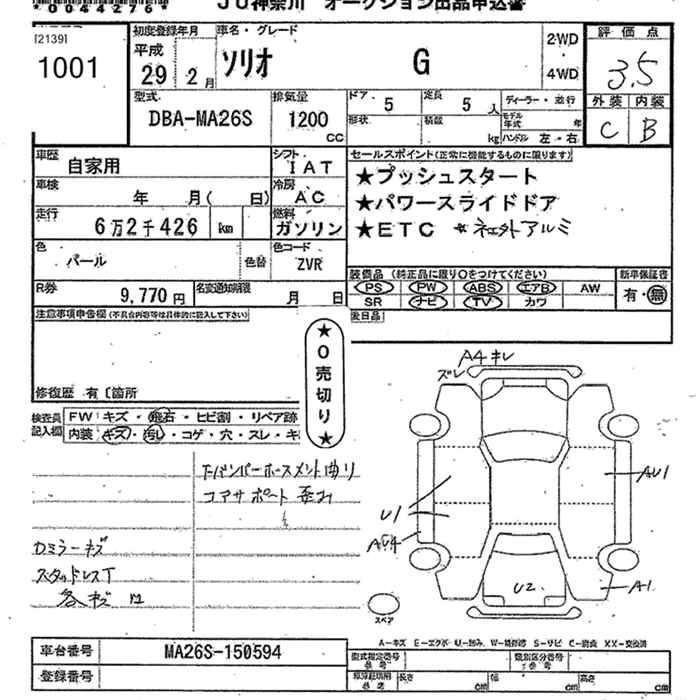 *0044276*
JU神奈川 オークション出品申込書
[2139]
1001
初度登録年月
平成
29 2月
車名・グレード
ソリオ G
2WD
4WD
評価点
3.5
外装 内装
C B
型式
DBA-MA26S
排気量
1200
CC
ドア 5
定員 5 人
形状
積載
kg
ディーラー・並行
モデル年式 年
ハンドル 左・右
車歴
自家用
シフト
IAT
車検
年 月( 日)
冷房
AC
走行
6万2千426 km
燃料
ガソリン
色
パール
色替
色コード
ZVR
R券
9,770円
名変通知期限
月 日
セールスポイント(正常に機能するものに限ります)
★プッシュスタート
★パワースライドドア
★ETC ★社外アルミ
装備品 (純正品に限り○をつけてください)
PS PW ABS エアB AW
SR ナビ TV カワ
新車保証書
有・無
注意事項申告欄(不具合内容等は具体的に記入して下さい)
後日品
★0売切り★
修復歴 有〔箇所
検査員記入欄
FW キズ・飛石・ヒビ割・リペア跡
内装 キズ・汚レ・コゲ・穴・スレ・キ
コアサポート
カミラーキズ
スタッドレス
各キズ凹
A4 キレ
ズレ
AU1
U1
A1
U2
スペア
A-キズ E-エクボ U-凹み W-補修跡 S-サビ C-腐蝕 XX-交換済
車台番号
MA26S-150594
登録番号
型式指定番号
類別区分番号
長さ cm
幅 cm
高さ cm